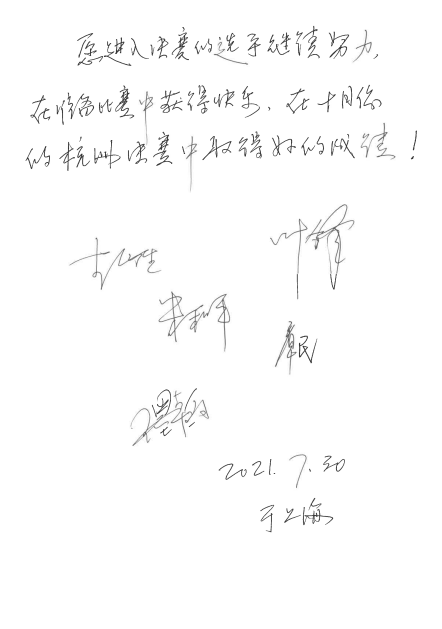 愿进入决赛的选手继续努力,
在准备比赛中获得快乐. 在十月份
的杭州决赛中取得好的成绩！
叶锋
2021. 7. 30
于上海